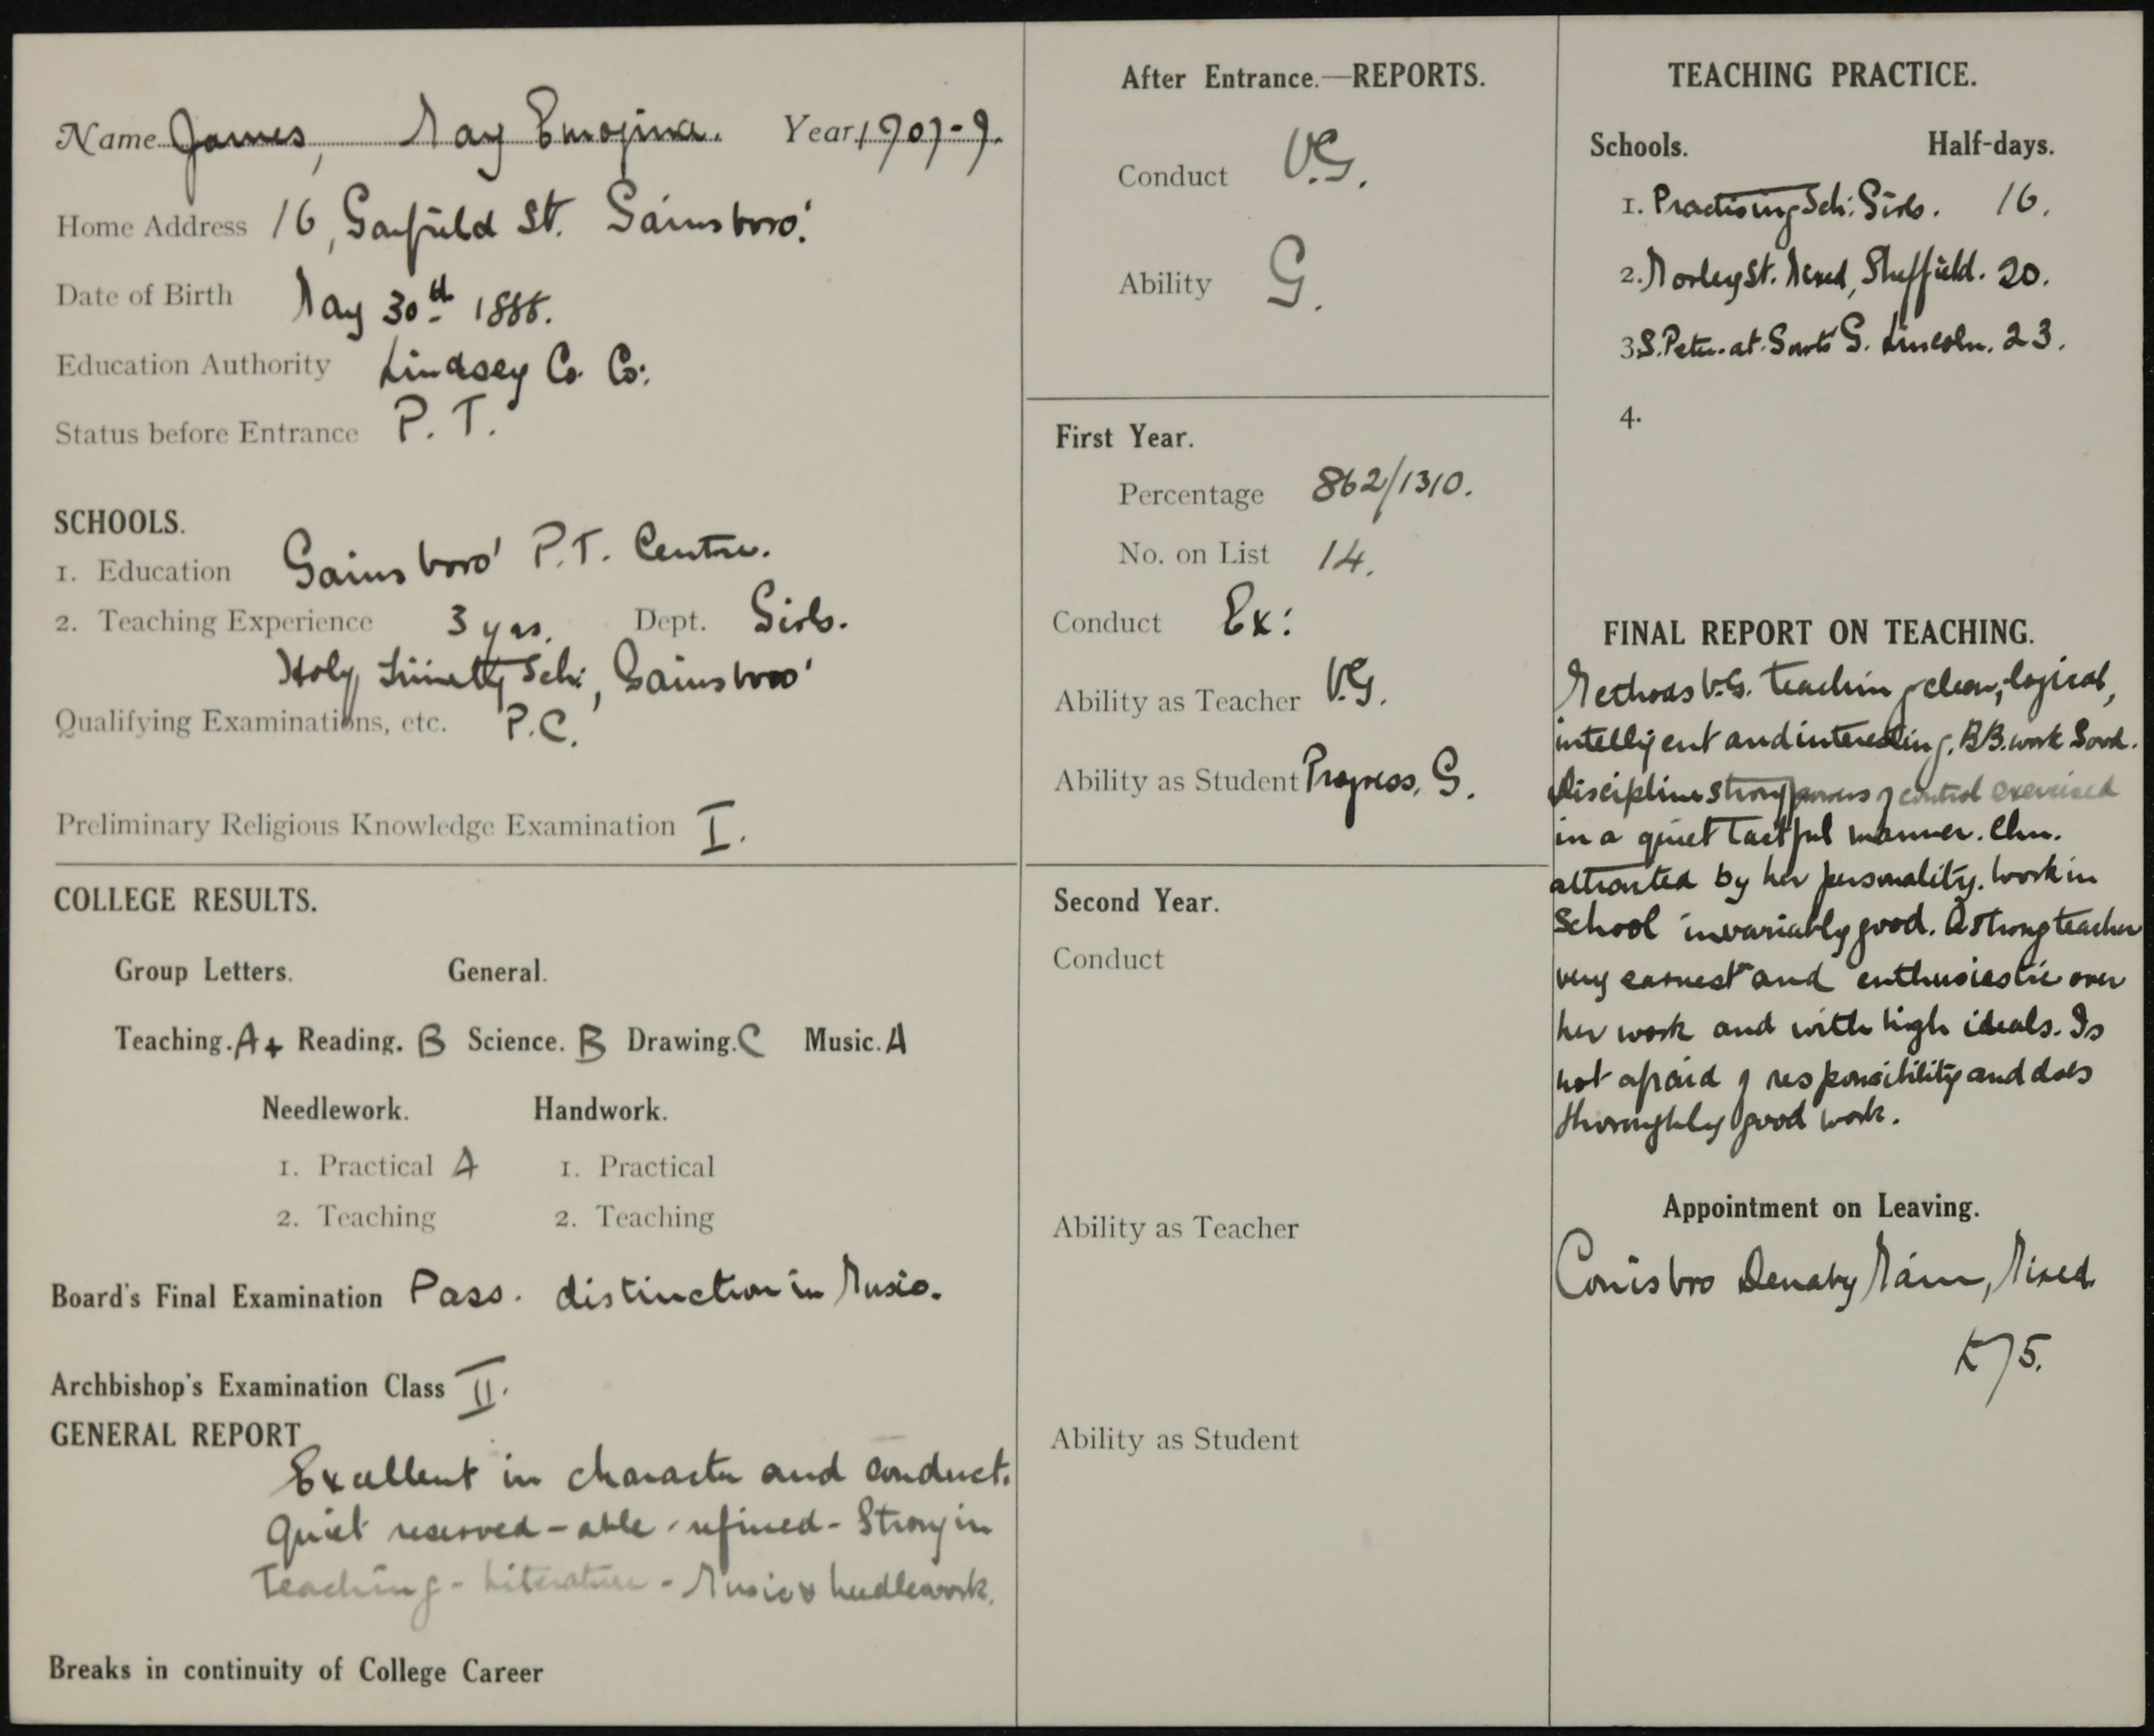 Name James, May Emogina. Year 1907-9.
Home Address 16, Garfield St. Gainsboro'.
Date of Birth May 30th 1888.
Education Authority Lindsey Co. Co:
Status before Entrance P.T.
SCHOOLS.
1. Education Gainsboro' P.T. Centre.
2. Teaching Experience 3 yrs. Dept. Girls.
Holy Trinity Sch:, Gainsboro'
Qualifying Examinations, etc. P.C.
Preliminary Religious Knowledge Examination I.
COLLEGE RESULTS.
Group Letters. General.
Teaching. A+ Reading. B Science. B Drawing. C Music. A
Needlework. Handwork.
1. Practical A 1. Practical
2. Teaching 2. Teaching
Board's Final Examination Pass. distinction in Music.
Archbishop's Examination Class II.
GENERAL REPORT
Excellent in character and conduct.
Quiet reserved - able - refined - Strong in
Teaching - Literature - Music & needlework.
Breaks in continuity of College Career
After Entrance.—REPORTS.
Conduct V.G.
Ability G.
First Year.
Percentage 862/1310.
No. on List 14.
Conduct Ex:
Ability as Teacher V.G.
Ability as Student Progress, G.
Second Year.
Conduct
Ability as Teacher
Ability as Student
TEACHING PRACTICE.
Schools. Half-days.
1. Practising Sch: Girls. 16.
2. Morley St. Mixed, Sheffield. 20.
3 S. Peter-at-Gowts G. Lincoln. 23.
4.
FINAL REPORT ON TEACHING.
Methods V.G. Teaching clear, logical,
intelligent and interesting. BB. work Good.
Discipline strong powers of control exercised
in a quiet tactful manner. Chn.
attracted by her personality. Work in
School invariably good. A strong teacher
very earnest and enthusiastic over
her work and with high ideals. Is
not afraid of responsibility and does
thoroughly good work.
Appointment on Leaving.
Conisbro Denaby Main, Mixed
£75.